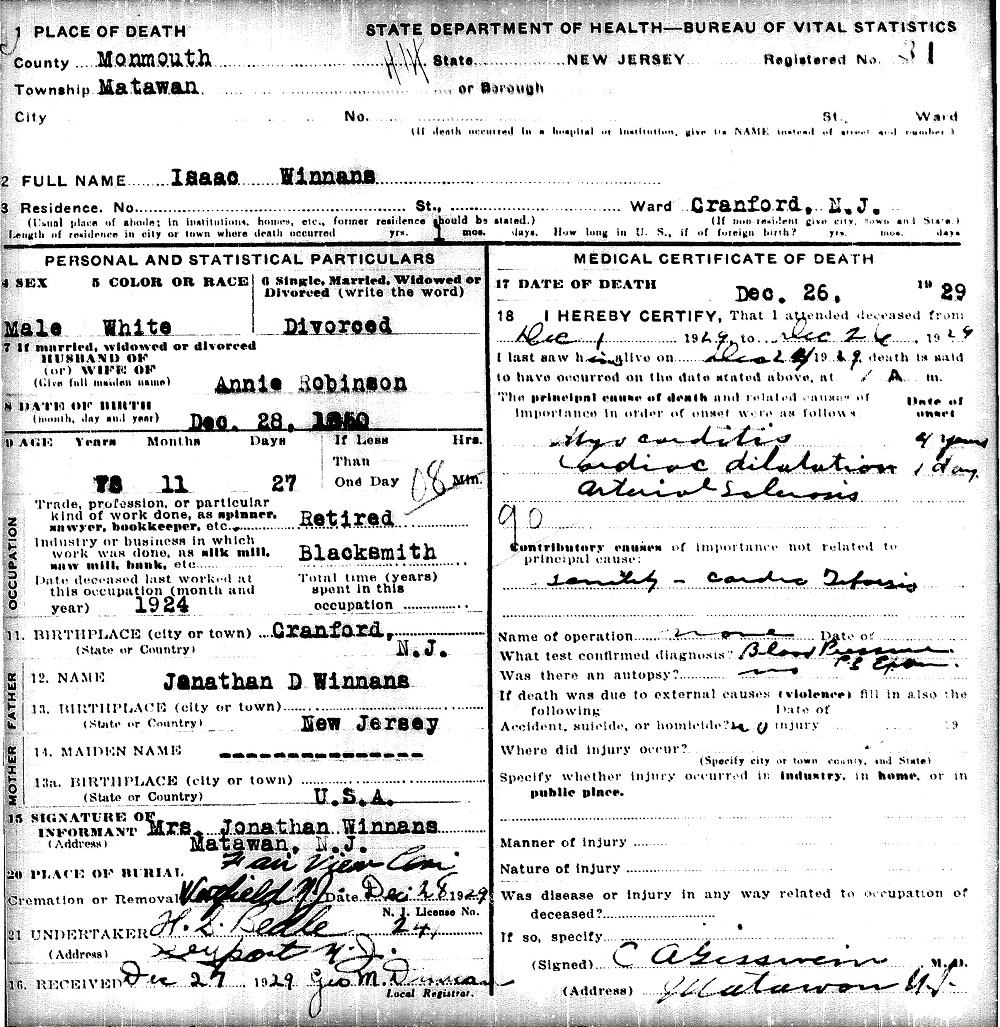 1 PLACE OF DEATH STATE DEPARTMENT OF HEALTH—BUREAU OF VITAL STATISTICS
County Monmouth State NEW JERSEY Registered No. 31
Township Matawan. or Borough
City No. St. Ward
(If death occurred in a hospital or institution, give its NAME instead of street and number)
2 FULL NAME Isaac Winnans
3 Residence. No. St., Ward Cranford, N.J.
(Usual place of abode; in institutions, homes, etc., former residence should be stated.) (If non resident give city, town and State)
Length of residence in city or town where death occurred yrs. 1 mos. days. How long in U. S., if of foreign birth? yrs. mos. days
PERSONAL AND STATISTICAL PARTICULARS
4 SEX 5 COLOR OR RACE 6 Single, Married, Widowed or
Divorced (write the word)
Male White Divorced
7 If married, widowed or divorced
HUSBAND OF
(or) WIFE OF
(Give full maiden name) Annie Robinson
8 DATE OF BIRTH
(month, day and year) Dec. 28, 1850
9 AGE Years Months Days If Less Hrs.
Than
78 11 27 One Day Min.
OCCUPATION
Trade, profession, or particular
kind of work done, as spinner,
sawyer, bookkeeper, etc. Retired
Industry or business in which
work was done, as silk mill,
saw mill, bank, etc. Blacksmith
Date deceased last worked at Total time (years)
this occupation (month and spent in this
year) 1924 occupation
11. BIRTHPLACE (city or town) Cranford,
(State or Country) N.J.
FATHER
12. NAME Janathan D Winnans
13. BIRTHPLACE (city or town)
(State or Country) New Jersey
MOTHER
14. MAIDEN NAME ---------------
13a. BIRTHPLACE (city or town)
(State or Country) U.S.A.
15 SIGNATURE OF
INFORMANT Mrs. Jonathan Winnans
(Address) Matawan, N.J.
Fair View Cem
20 PLACE OF BURIAL
Cremation or Removal N.J. Date Dec 28 1929
N. J. License No.
21 UNDERTAKER H. L. Bedle 241
(Address) Keyport N.J.
16. RECEIVED Dec 27 1929 Geo M. Duncan
Local Registrar.
MEDICAL CERTIFICATE OF DEATH
17 DATE OF DEATH Dec. 26, 1929
18 I HEREBY CERTIFY, That I attended deceased from
Dec 1 1929, to Dec 26, 1929
I last saw him alive on Dec 24 1929, death is said
to have occurred on the date stated above, at 1 A m.
The principal cause of death and related causes of Date of
Importance in order of onset were as follows onset
Myocarditis 4 years
Cardiac dilatation 1 day
Arterial Sclerosis
90
Contributory causes of importance not related to
principal cause:
Senility - Cardiac
Name of operation none Date of
What test confirmed diagnosis? Blood Pressure
P.E Exam.
Was there an autopsy? no
If death was due to external causes (violence) fill in also the
following Date of
Accident, suicide, or homicide? no injury 19
Where did injury occur?
(Specify city or town county, and State)
Specify whether injury occurred in industry, in home, or in
public place.
Manner of injury
Nature of injury
Was disease or injury in any way related to occupation of
deceased?
If so, specify
(Signed) C A Gesswein M.D.
(Address) Matawan N.J.